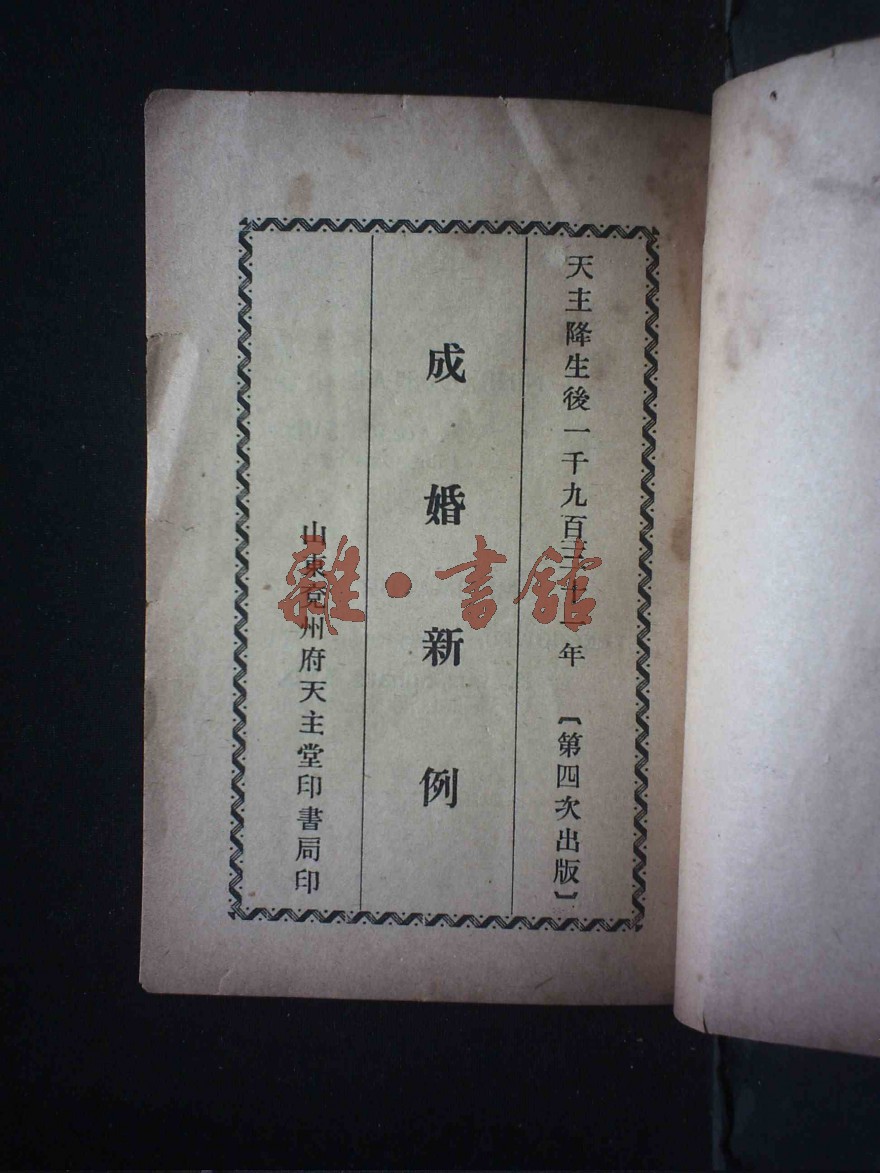 天主降生後一千九百三十一年 〔第四次出版〕
成婚新例
山東兗州府天主堂印書局印
雜·書館